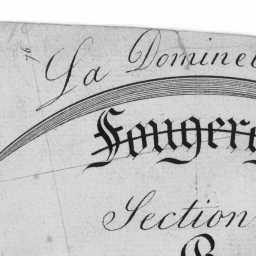 La Domine
Fouger
Section